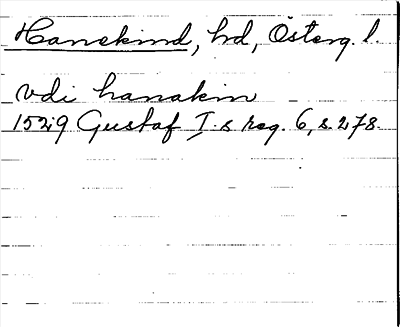 Hanekind, hd, Österg. l.
vdi hanakin
1529 Gustaf I.s reg. 6, s. 278.